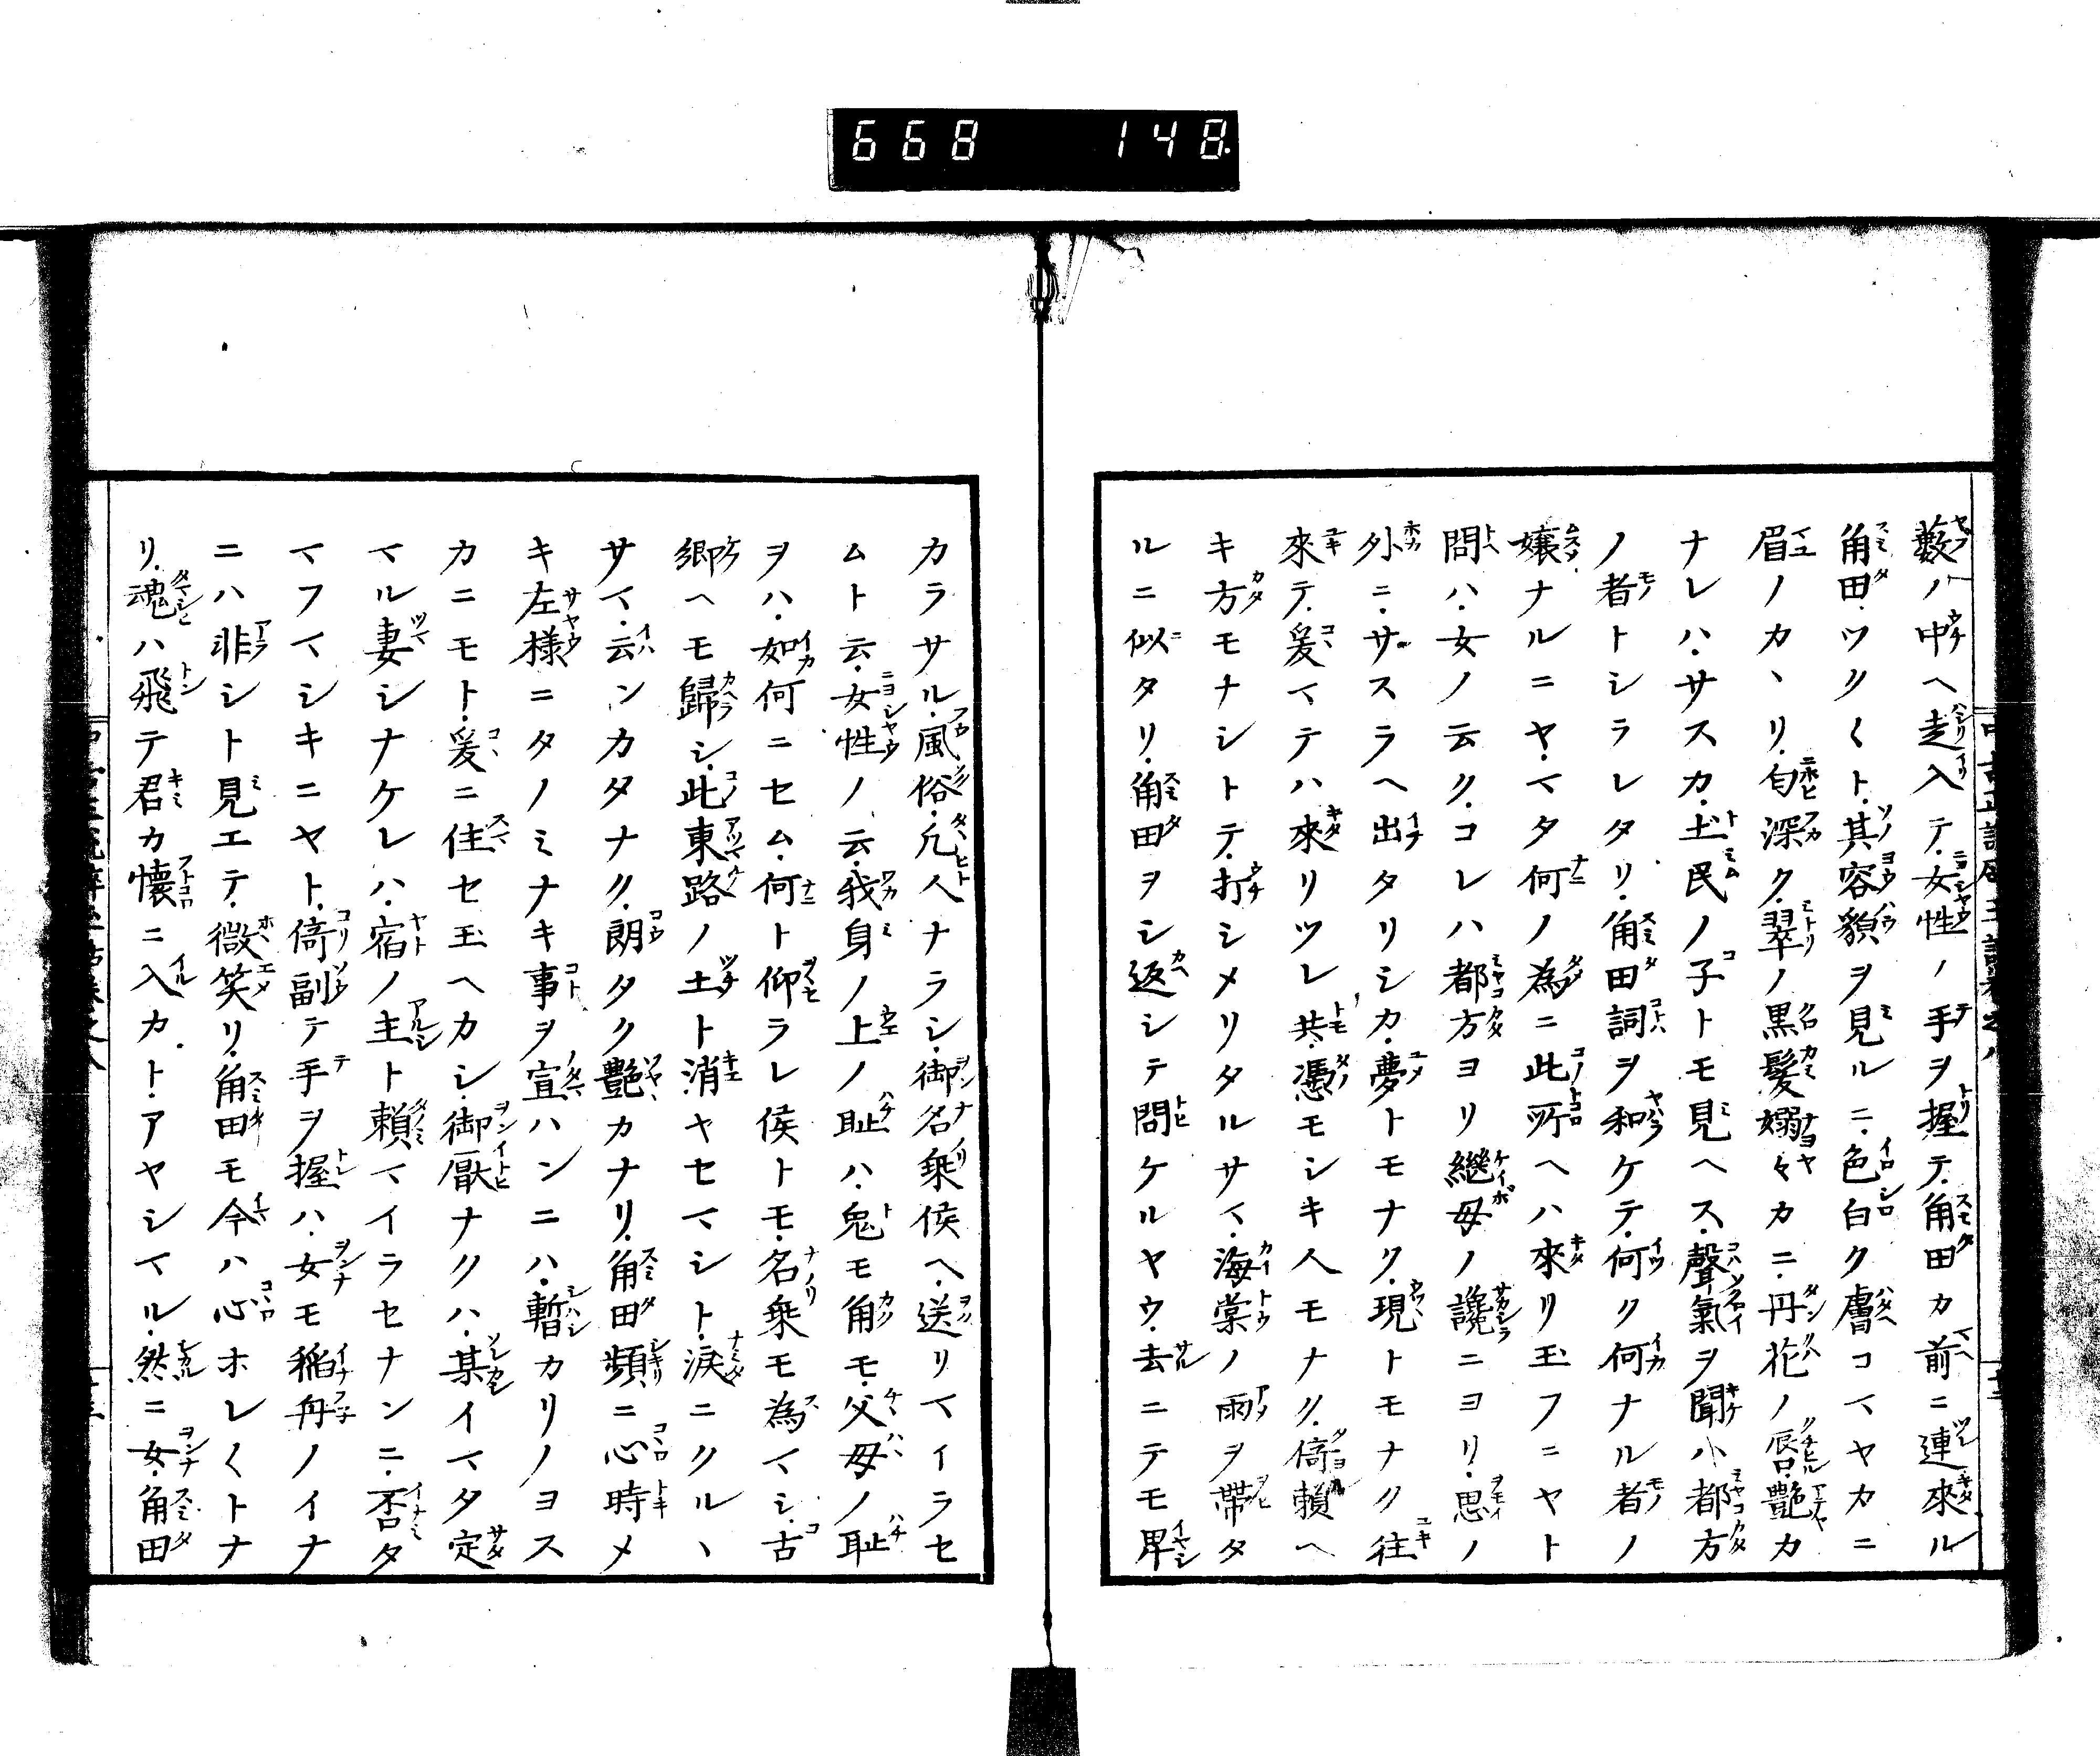 668 148
藪ノ中ヘ走入テ女性ノ手ヲ握テ角田カ前ニ連來ル
角田ツク〱ト其容貌ヲ見ルニ色白ク膚コマヤカニ
眉ノカヽリ匂深ク翠ノ黒髪嫋々カニ丹花ノ唇艶カ
ナレハサスカ土民ノ子トモ見ヘス聲氣ヲ聞ハ都方
ノ者トシラレタリ角田詞ヲ和ケテ何ク何ナル者ノ
嬢ナルニヤマタ何ノ為ニ此所ヘハ來リ玉フニヤト
問ハ女ノ云クコレハ都方ヨリ継母ノ讒ニヨリ思ノ
外ニサスラヘ出タリシカ夢トモナク現トモナク往
來テ爰マテハ來リツレ共憑モシキ人モナク倚頼ヘ
キ方モナシトテ打シメリタルサマ海棠ノ雨ヲ帶タ
ルニ似タリ角田ヲシ返シテ問ケルヤウ去ニテモ卑
カラサル風俗凡人ナラシ御名乗侯ヘ送リマイラセ
ムト云女性ノ云我身ノ上ノ耻ハ兎モ角モ父母ノ耻
ヲハ如何ニセム何ト仰ラレ侯トモ名乗モ為マシ古
郷ヘモ歸シ此東路ノ土ト消ヤセマシト涙ニクルヽ
サマ云ンカタナク朗タク艶カナリ角田頻ニ心時メ
キ左様ニタノミナキ事ヲ宣ハンニハ暫カリノヨス
カニモト爰ニ住セ玉ヘカシ御厭ナクハ某イマタ定
マル妻シナケレハ宿ノ主ト頼マイラセナンニ否タ
マフマシキニヤト倚副テ手ヲ握ハ女モ稲舟ノイナ
ニハ非シト見エテ微笑リ角田モ今ハ心ホレ〱トナ
リ魂ハ飛テ君カ懐ニ入カトアヤシマル然ニ女角田